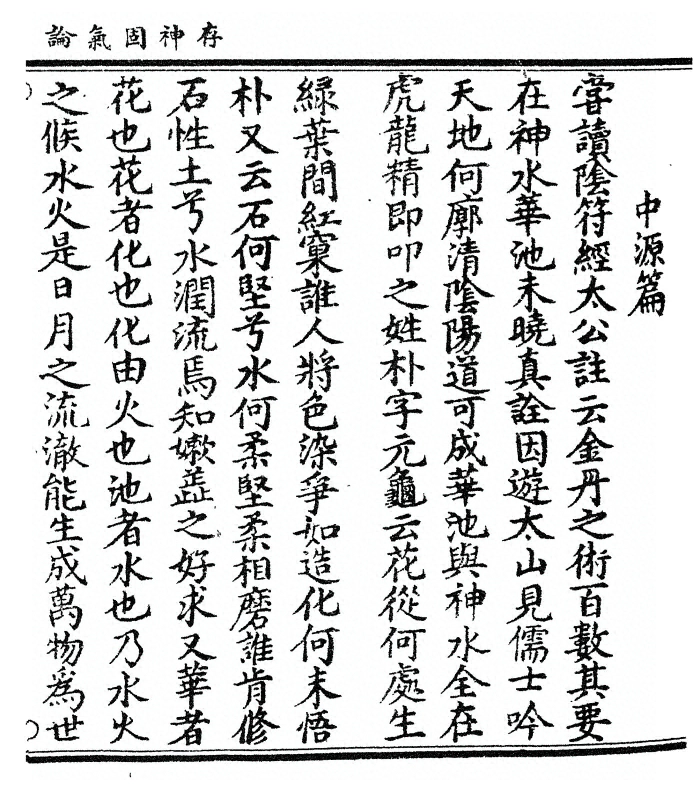 存神固氣論
中源篇
嘗讀陰符經太公註云金丹之術百數其要
在神水華池未曉真詮因遊太山見儒士吟
天地何廓清陰陽道可成華池與神水全在
虎龍精即叩之姓朴字元龜云花從何處生
綠葉間紅窠誰人將色染爭如造化何未悟
朴又云石何堅兮水何柔堅柔相磨誰肯修
石性土兮水潤流焉知嫰蕋之好求又華者
花也花者化也化由火也池者水也乃水火
之候水火是日月之流澈能生成萬物為世